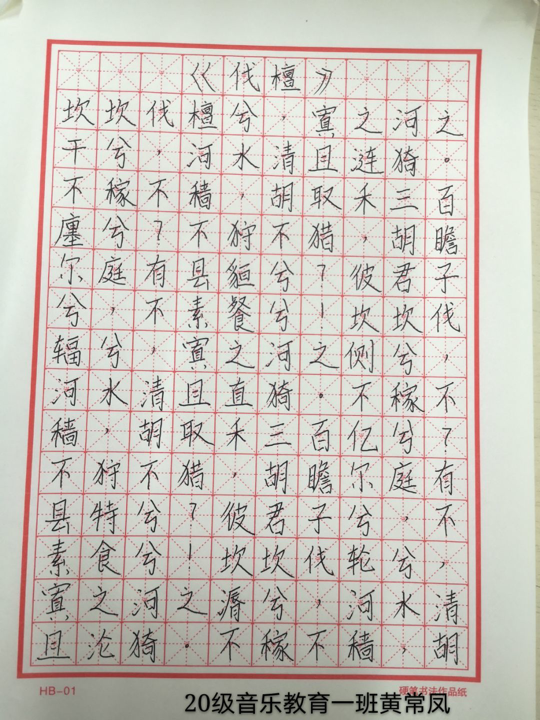 《伐檀》
坎坎伐檀兮，寘之河之
干兮，河水清且涟猗。
不稼不穑，胡取禾三百
廛兮？不狩不猎，胡瞻
尔庭有县貆兮？彼君子
兮，不素餐兮！坎坎伐
辐兮，寘之河之侧兮，
河水清且直猗。不稼不
穑，胡取禾三百亿兮？
不狩不猎，胡瞻尔庭有
县特兮？彼君子兮，不
素食兮！坎坎伐轮兮，
寘之河之漘兮，河水清
且沦猗。不稼不穑，胡
HB-01
硬笔书法作品纸
20级音乐教育一班黄常凤